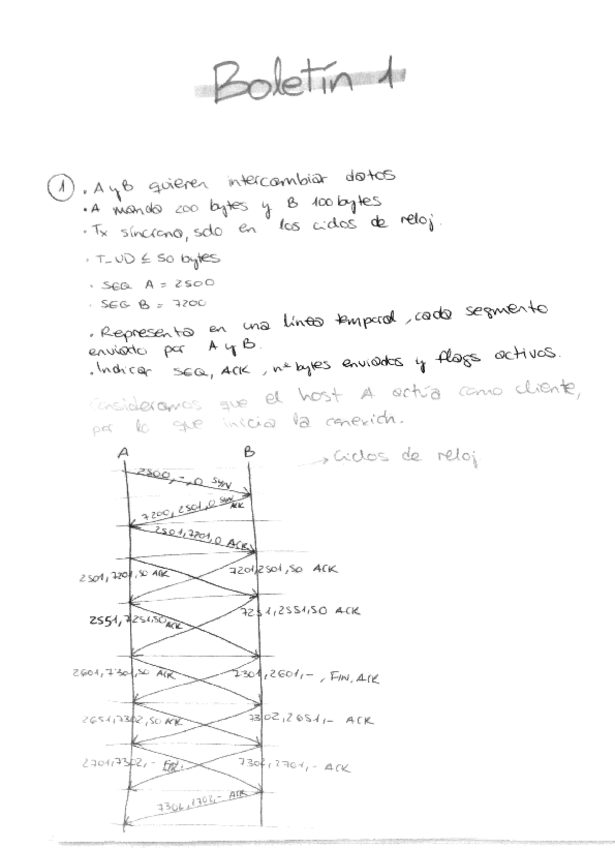 Boletín 1
1 . A y B quieren intercambiar datos
. A manda 200 bytes y B 100 bytes
. Tx síncrona, solo en los ciclos de reloj.
. T_UD ≤ 50 bytes
. SEQ A = 2500
. SEQ B = 7200
. Representa en una línea temporal, cada segmento
enviado por A y B.
. Indicar SEQ, ACK, nº bytes enviados y flags activos.
Consideramos que el host A actúa como cliente,
por lo que inicia la conexión.
A B → Ciclos de reloj
2500, -, 0 SYN
7200, 2501, 0 SYN ACK
2501, 7201, 0 ACK
2501, 7201, 50 ACK 7201, 2501, 50 ACK
2551, 7251, 50 ACK 7251, 2551, 50 ACK
2601, 7301, 50 ACK 7301, 2601, -, FIN, ACK
2651, 7302, 50 ACK 7302, 2651, - ACK
2701, 7302, - FIN. 7302, 2701, - ACK
7302, 2702, - ACK